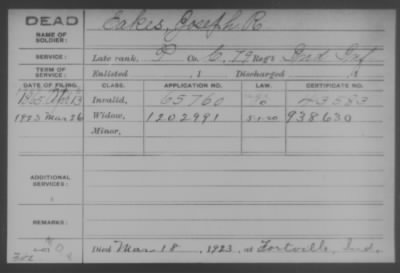 DEAD
NAME OF SOLDIER:
Eakes, Joseph R
SERVICE:
Late rank, P Co. C, 79 Reg't Ind Inf
TERM OF SERVICE:
Enlisted , 1 Discharged , 1
DATE OF FILING. CLASS. APPLICATION NO. LAW. CERTIFICATE NO.
1865 Invalid, 65760 43583
1923 Mar 26 Widow, 1202991 5-1-20 938630
Minor,
ADDITIONAL SERVICES:
REMARKS:
Died Mar 18, 1923, at Fortville, Ind.